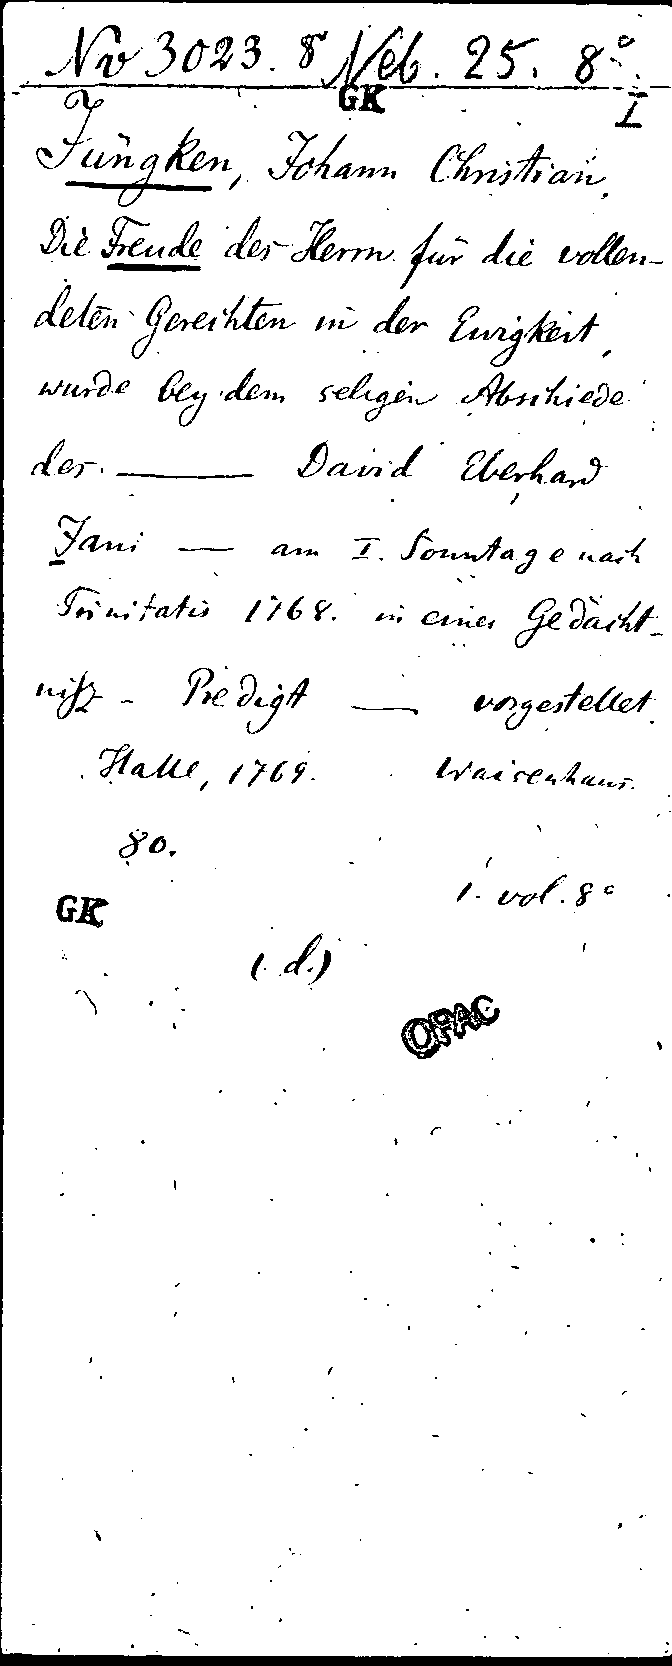 Nv 3023. 8 Neb. 25. 8°.
GK I
Jüngken, Johann Christian,
Die Freude des Herrn für die vollen-
deten Gerechten in der Ewigkeit,
wurde bey dem seligen Abschiede
des. —— David Eberhard
Jani — am I. Sonntage nach
Trinitatis 1768. in einer Gedächt-
nisz - Predigt — vorgestellet.
Halle, 1769. Waisenhaus.
80.
1. vol. 8°
GK
(d.)
OPAC